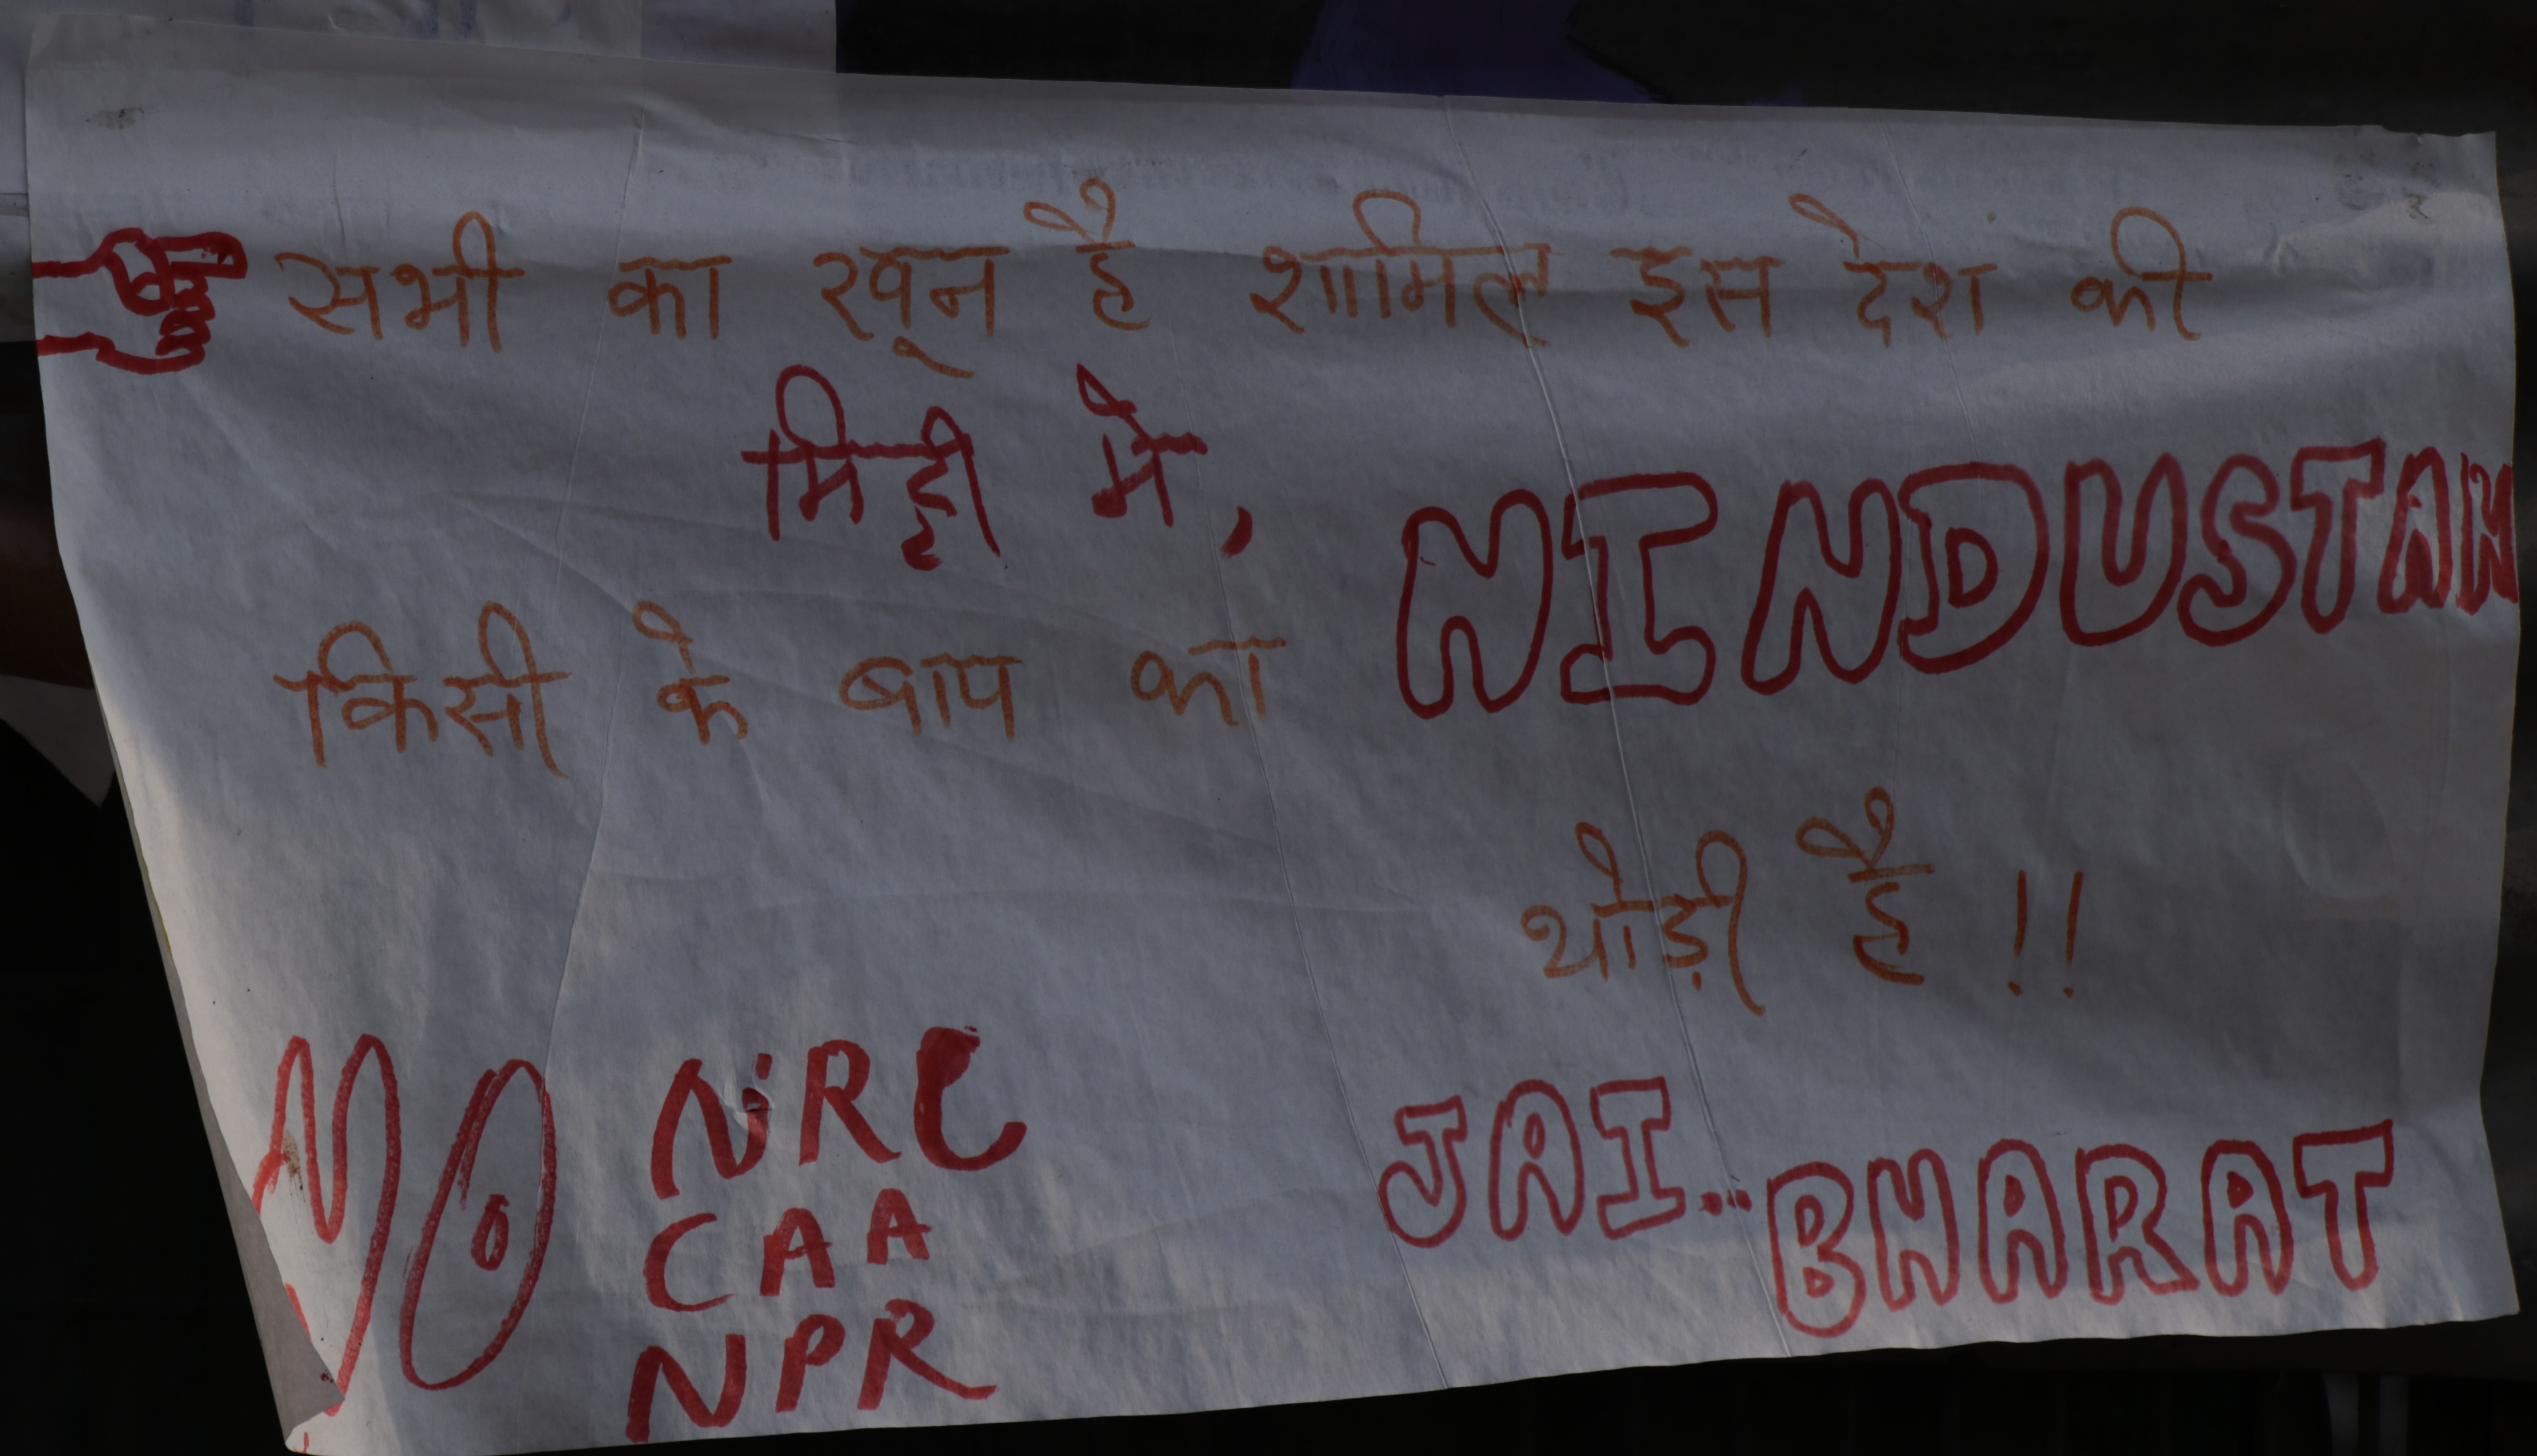 सभी का खून है शामिल इस देश की
मिट्टी मे,
किसी के बाप का HINDUSTAN
थोड़ी है !!
NO NRC
CAA
NPR
JAI.. BHARAT